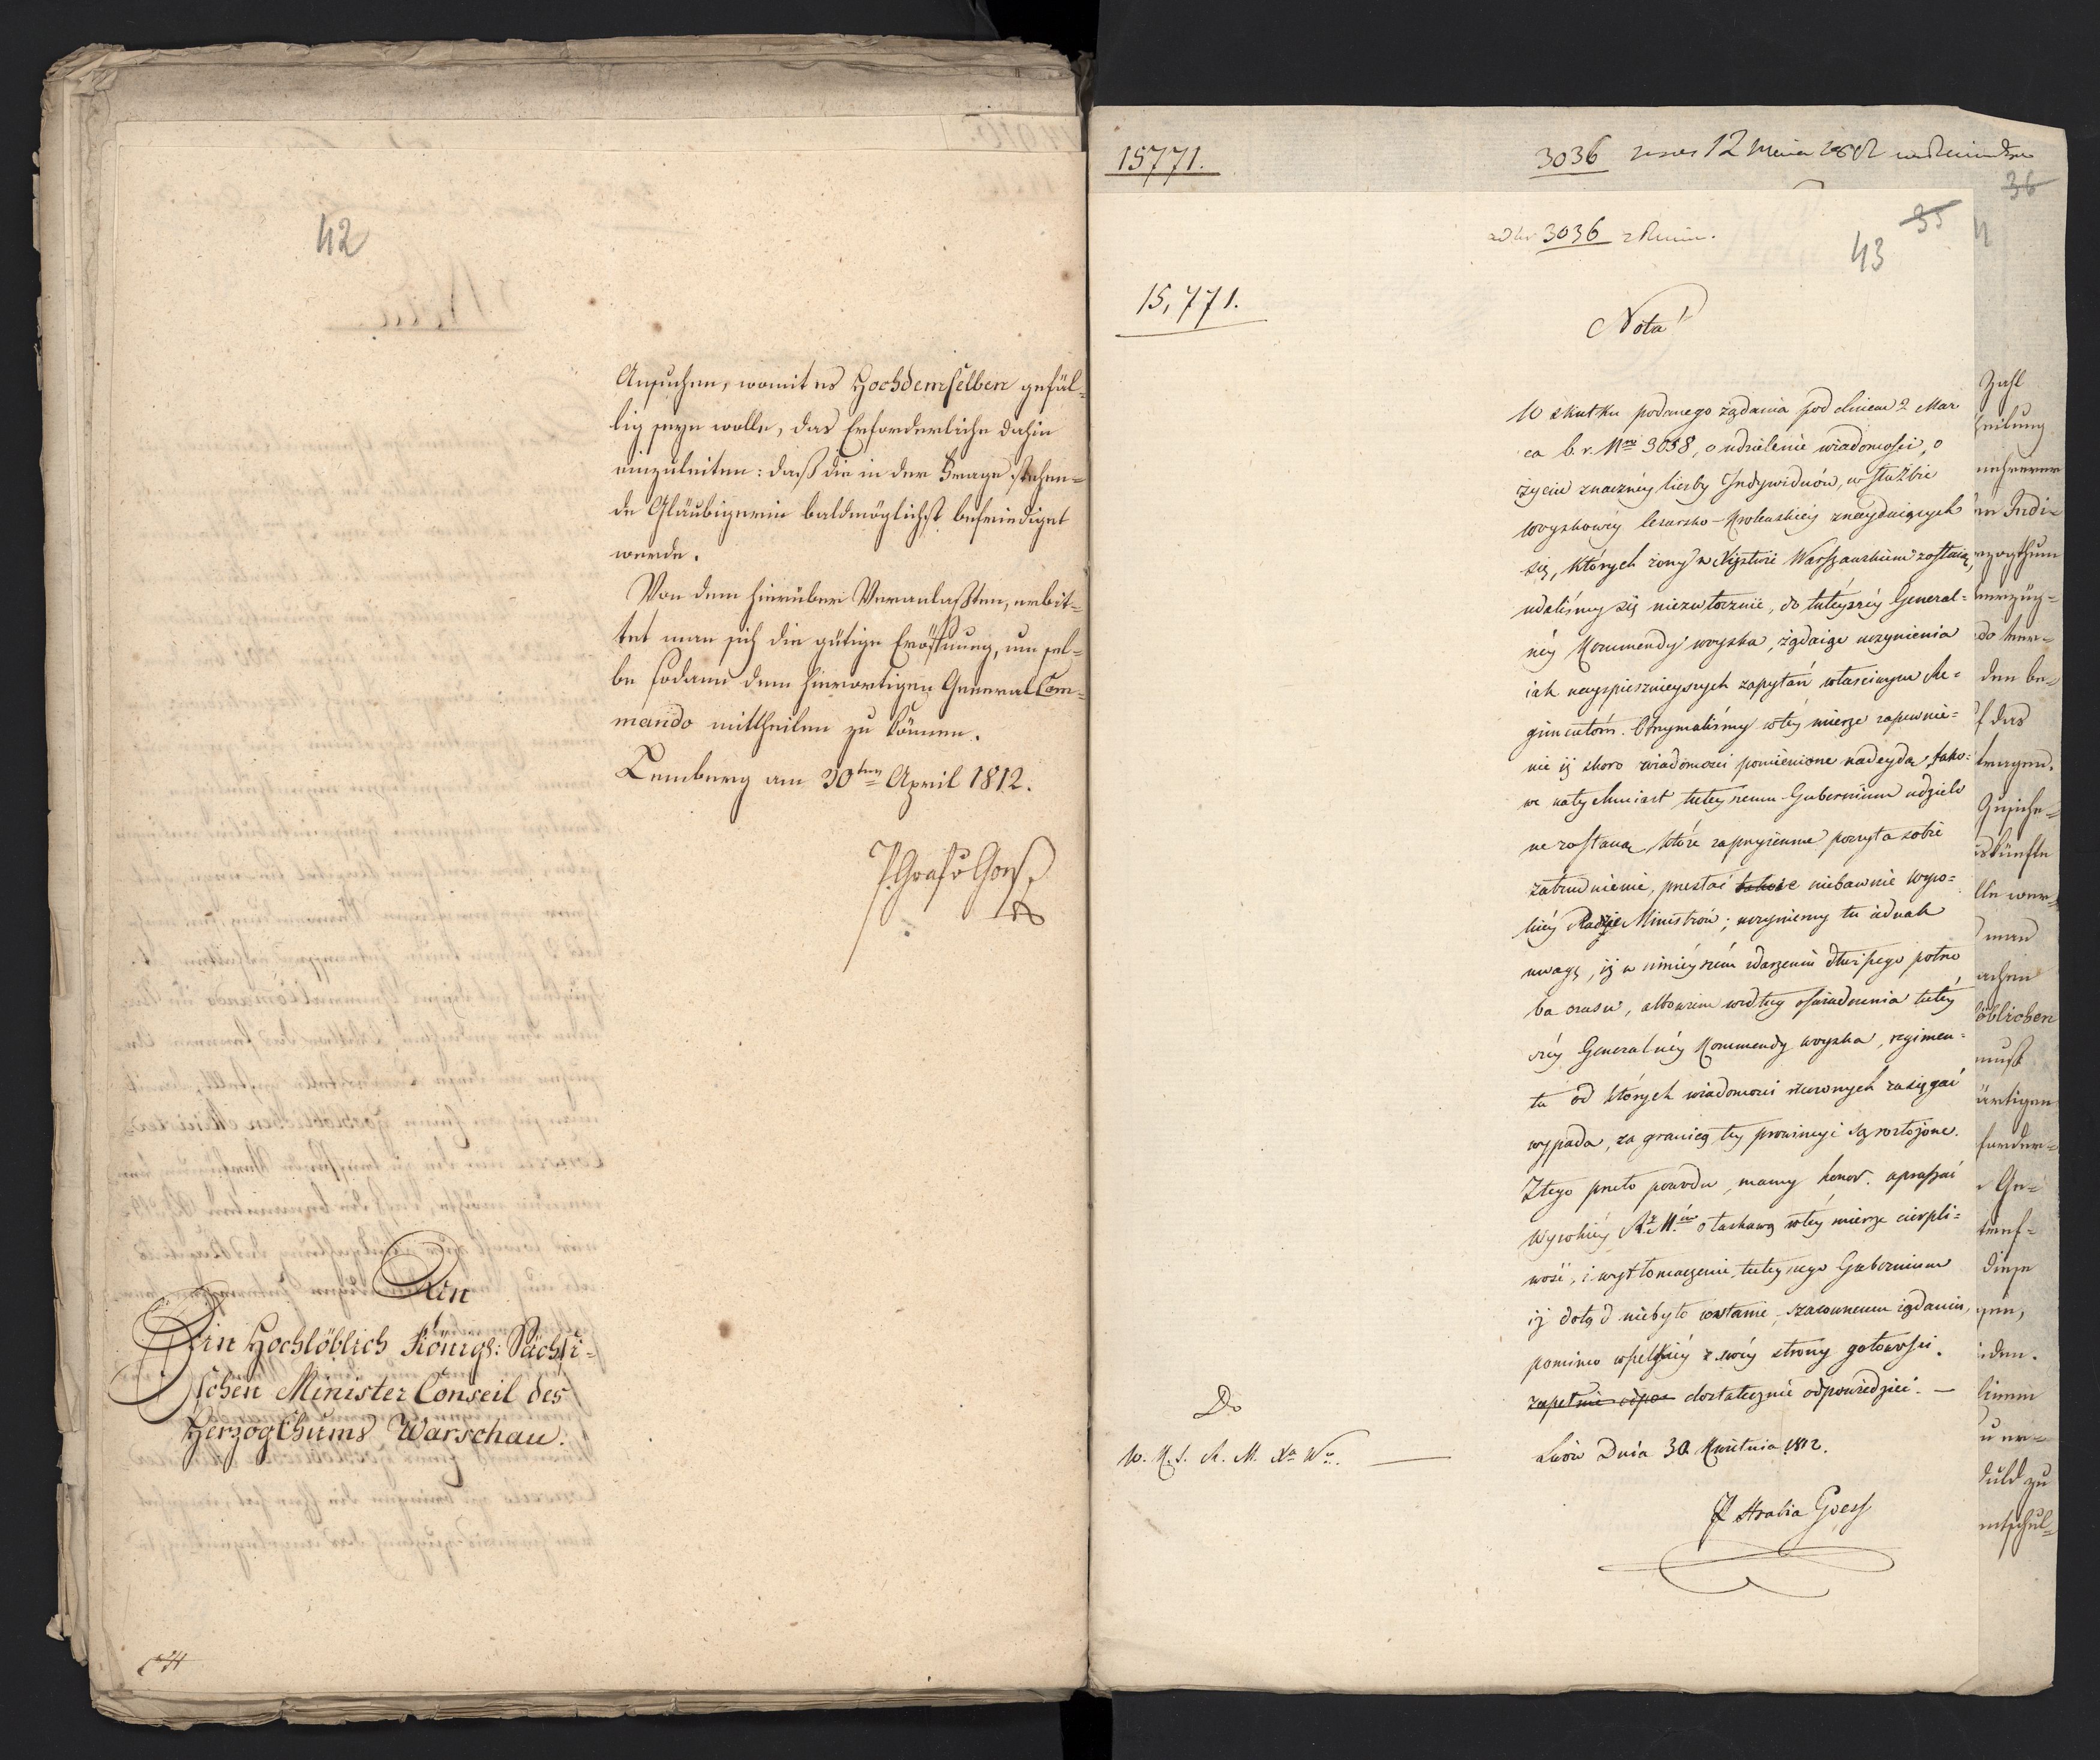 42
Ansuchen, womit es Hochdemselben gefäl-
lig seyn wolle, das Erforderliche dahin
einzuleiten: daß die in der Frage stehen-
de Gläubigerin baldmöglichst befriediget
werde.
Von dem hierüber Veranlaßten, erbit-
tet man sich die gütige Eröffnung, um sel-
be sodann dem hierortigen General Com-
mando mittheilen zu können.
Lemberg am 30ten April 1812.
P. Graf v Goess
An
Ein Hochlöblich Königl: Sächsi-
schen Minister Conseil des
Herzogthums Warschau.
15771.
3036 12 1812
36
3036
35
43
15,771.
Nota
W skutku podanego żądania pod dniem 2 Mar
ca b. r. Nro 3038, o udzielenie wiadomości, o
życiu znaczney liczby Indywiduów, w służbie
woyskowey Cesarsko-Krolewskiey znayduiących
się, których żony w Xięstwie Warszawskiem zostaią,
udaliśmy się niezwłocznie, do tuteyszéy General-
néy Kommendy woyska, żądaiąc uczynienia
iak nayspiesznieyszych zapytań właściwym Re-
gimentóm. Otrzymaliśmy w téy mierze zapewnie-
nie iż skoro wiadomosci pomienione nadeydą, tako-
we natychmiast tuteyszemu Gubernium udzielo
ne zostaną, które zaprzyiemne poczyta sobie
zatrudnienie, przesłać niebawnie Wyso-
kiéy Radzie Ministrów; uczyniemy tu iednak
uwagę, iż w ninieyszém zdarzeniu dłuższego potrze
ba czasu, albowiem według oświadczenia tutéy
széy Generalnéy Kommendy woyska, regimen-
ta od których wiadomosci rzeczonych zasięgać
wypada, za granicą téy prowincyi są rozłożone.
Z tego przeto powodu, mamy honor upraszać
Wysokiéy R. M. o łaskawą w téy mierze cierpli-
wość, i wytłomaczenie tuteyszego Gubernium
iż dotąd niebyło wstanie, szanownemu żądaniu,
pomimo wszelkiéy z swéy strony gotowości,
dostatecznie odpowiedzieć. —
Lwów Dnia 30. Kwietnia 1812.
Do
W. K. S. R. M. Xa Wo.
P Hrabia Goess
Zahl
theilung
mehrerer
en Indi-
rzogthum
den be-
f das
tragen.
man
löblichen
muß
ärtigen
Ge-
diese
gen,
linem